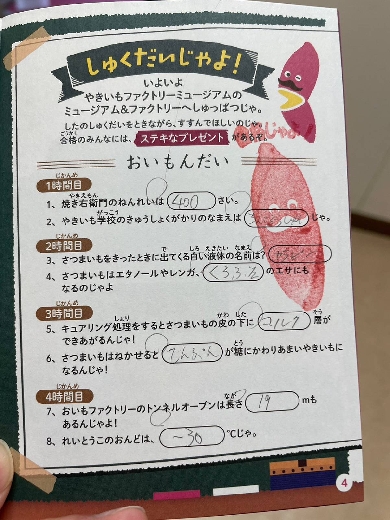 しゅくだいじゃよ！
いよいよ
やきいもファクトリーミュージアムの
ミュージアム&ファクトリーへしゅっぱつじゃ。
したのしゅくだいをときながら、すすんでほしいのじゃ。
合格のみんなには、ステキなプレゼントがあるぞ。
おいもんだい
1時間目
1、焼き右衛門のねんれいは 400 さい。
2、やきいも学校のきゅうしょくがかりのなまえは じゃ。
2時間目
3、さつまいもをきったときに出てくる白い液体の名前は？
4、さつまいもはエタノールやレンガ、くろぶた のエサにも
なるのじゃよ
3時間目
5、キュアリング処理をするとさつまいもの皮の下に コルク 層が
できあがるんじゃ！
6、さつまいもはねかせると でんぷん が糖にかわりあまいやきいもに
なるんじゃ！
4時間目
7、おいもファクトリーのトンネルオーブンは長さ 19 mも
あるんじゃよ！
8、れいとうこのおんどは、 -30 ℃じゃ。
4